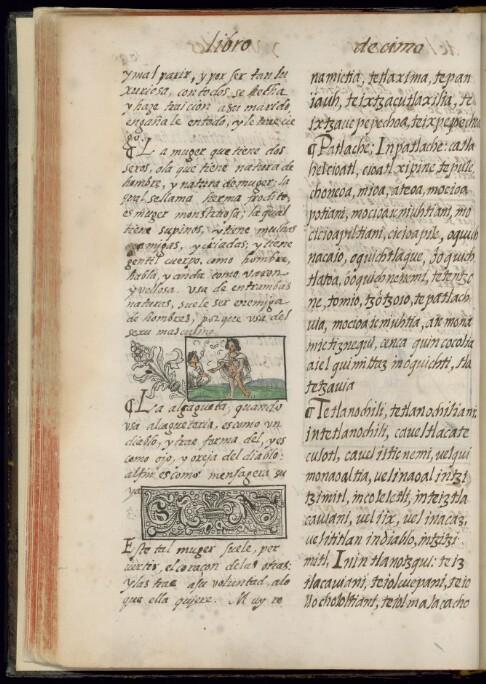 libro
decimo
y mal parir, y por ser tan lu
xuriosa, con todos se hecha
y haze traicion a su marido,
engañale en todo, y le trae cie
go.
¶ La muger que tiene dos
sexos, o la que tiene natura de
hombre, y natura de muger: la
qual se llama hermafrodito,
es muger monstruosa; la qual
tiene supinos, y tiene muchas
amigas, y criadas; y tiene
gentil cuerpo, como hombre,
habla, y anda como varon,
y vellosa. Usa de entrambas
naturas, suele ser enemiga
de hombres, porque usa del
sexu masculino.
¶ La alcagueta, quando
usa alcagueteria, es como un
diablo, y trae forma del, y es
como ojo, y oreja del diablo:
al fin es como mensagera su
ya
Este tal muger suele, per
vertir, el coraçon de las otras;
y las trae a su voluntad, a lo
que ella quiere. Muy re
namictia, tetlaxima, tepan
iauh, teixtzacutlaxilia,
teixpepech
¶ Patlache: In patlache: ca tla
helcioatl, cioatl xipine tepule,
choncoa, mioa, ateoa, mocioa
potiani, mocioaicniuhtiani, mo
cicioapiltiani, cicioapile, oquich
nacaio, oquichtlaque, ooquich
tlatoa, ooquichnenemi, tetentzo
ne, tomio, tzotzoio, tepatlach
uia, mocioaicniuhtia, aic mona
mictiznequi, cenca quin cocolia
aiel quimittaz in oquichti, tla
tetzauia
¶ Tetlanochili, tetlanochiliani
in tetlanochili, ca uel tlacate
culotl, ca uel iitic nemi, uel qui
monaoaltia, uel inaoal in tzi
tzimitl, in coleletli, inteiztla
cauiani, uel iix, uel inacaz,
uel ititlan in diablo, in tzitzi
mitl, Inin tlanotzqui: teiz
tlacauiani, teiolcuepani, teio
llo cholotiani, teiolmalacacho